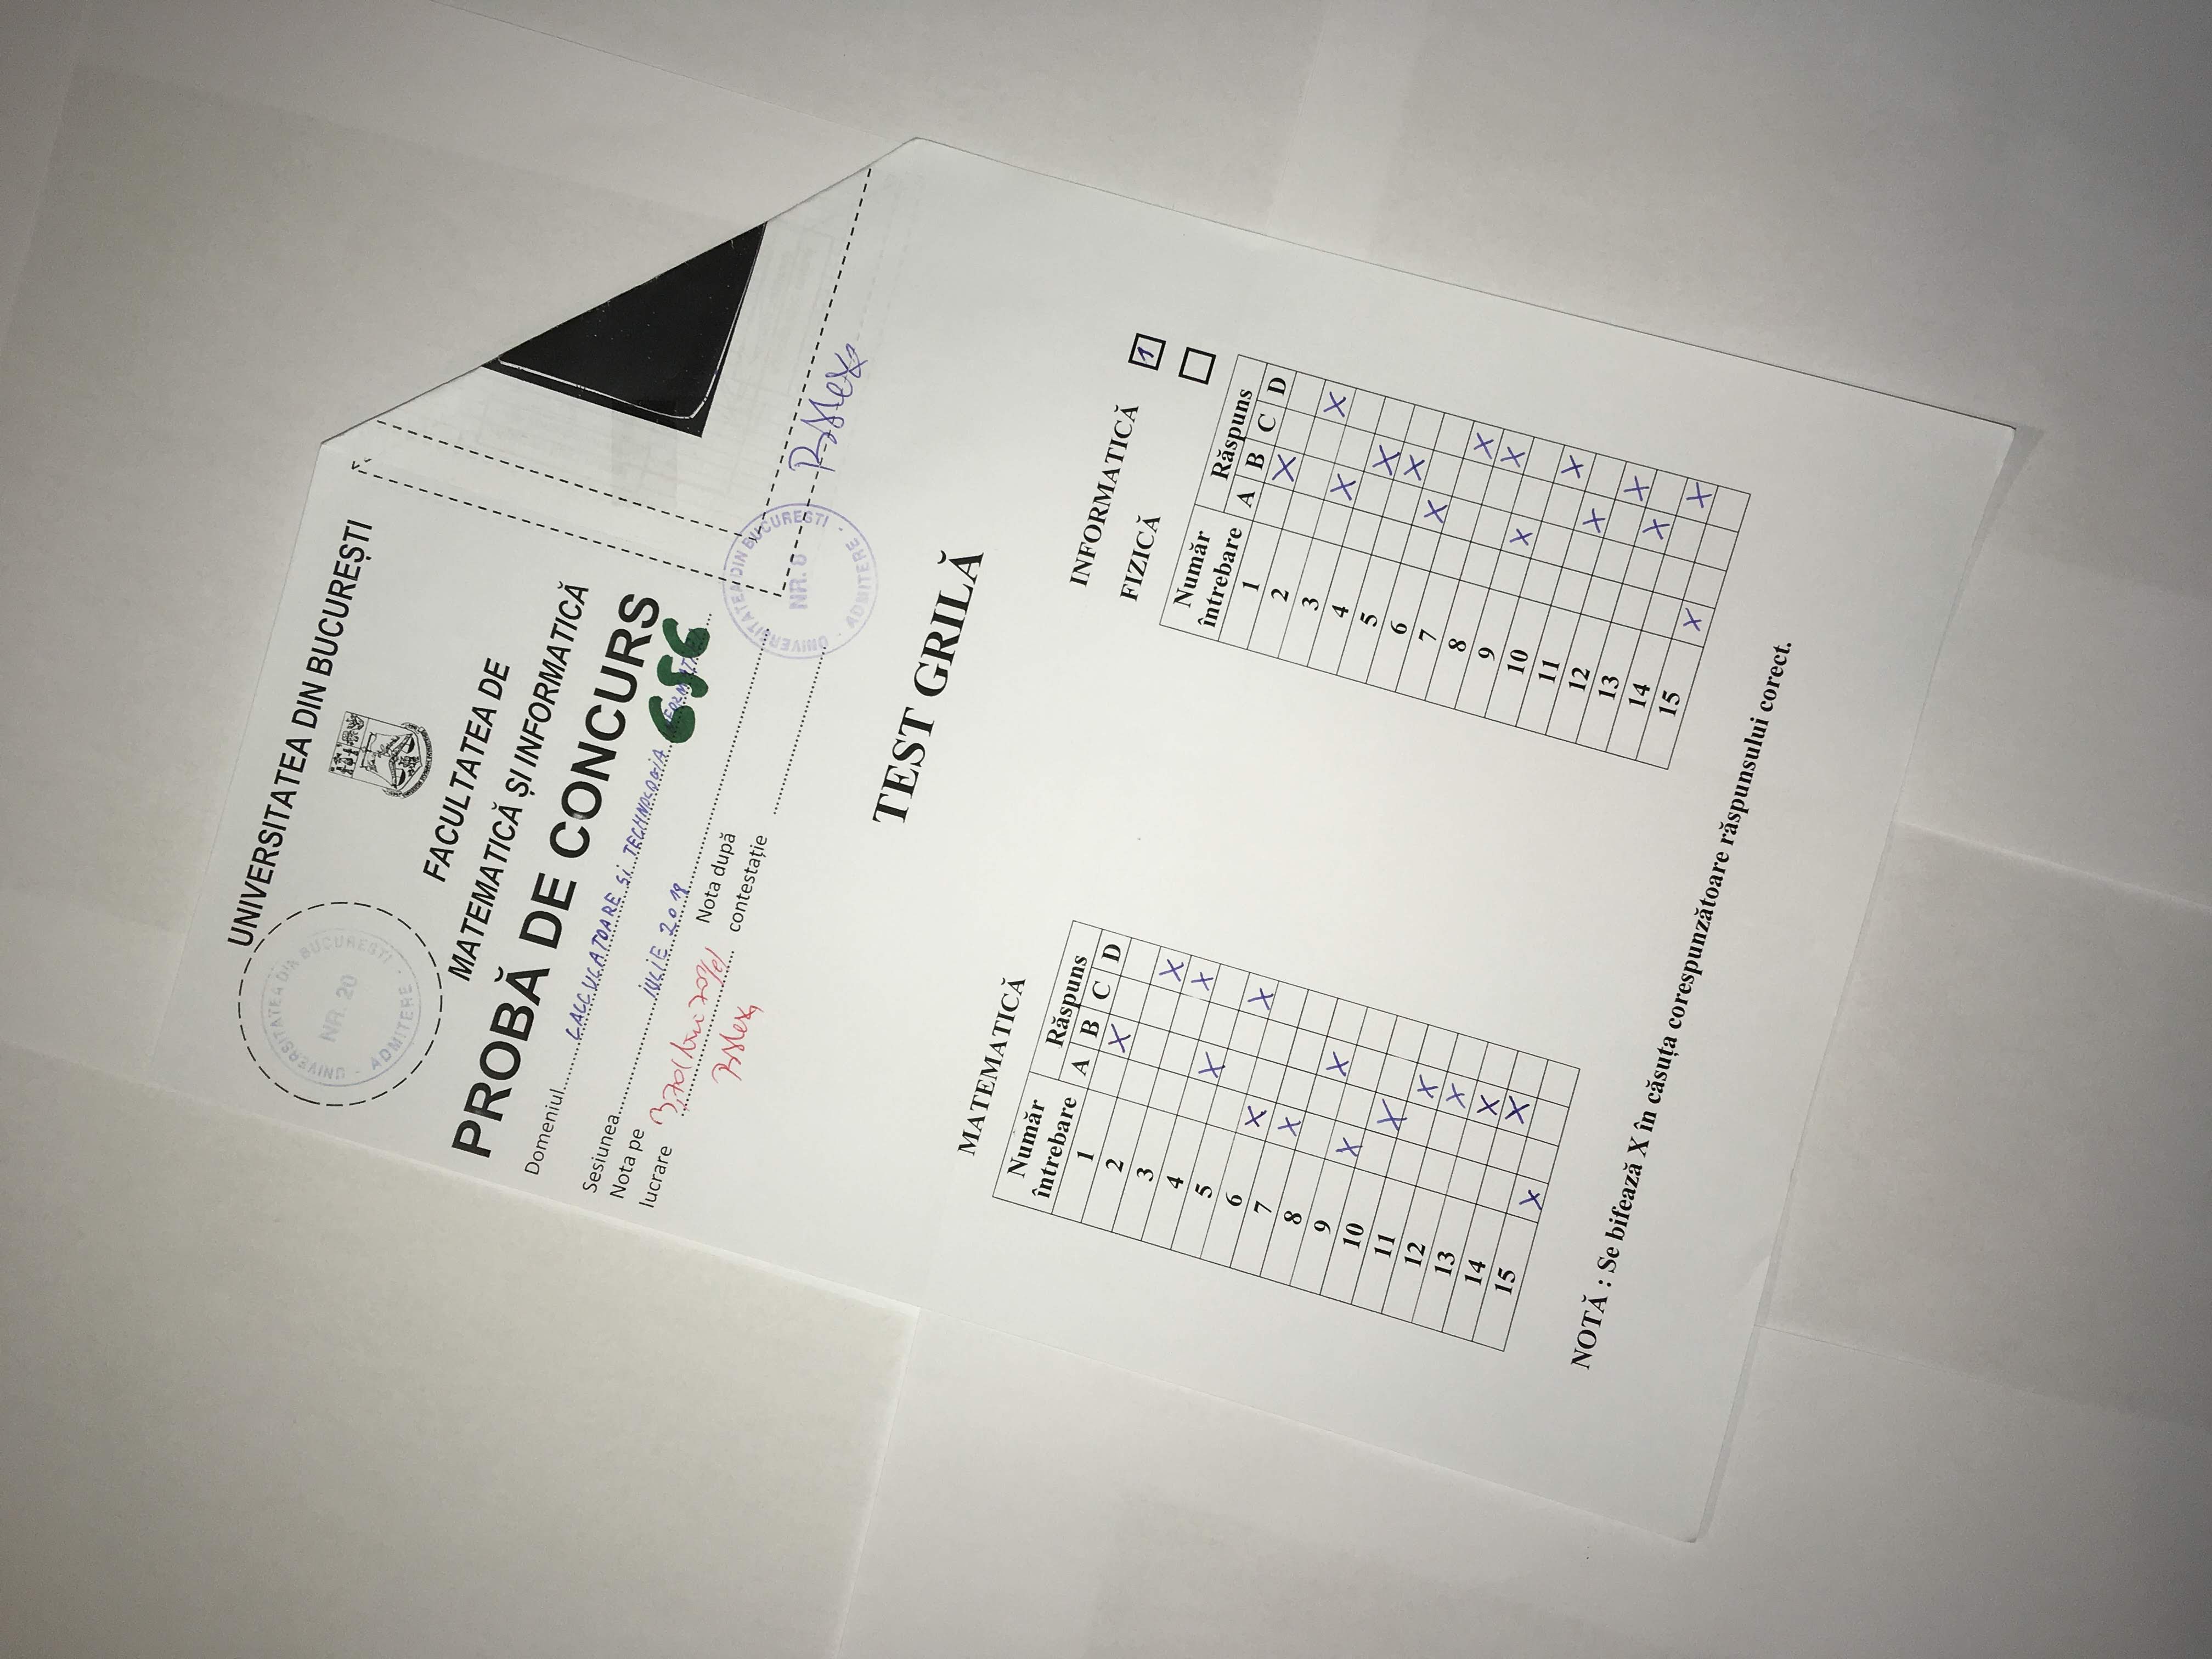 UNIVERSITATEA DIN BUCUREȘTI
UNIVERSITATEA DIN BUCURESTI
NR. 20
ADMITERE
FACULTATEA DE
MATEMATICĂ ȘI INFORMATICĂ
PROBĂ DE CONCURS
Domeniul CALCULATOARE și TECHNOLOGIA
656
Sesiunea IULIE 2018
Nota pe
lucrare 3,70 (trei 70%)
Nota după
contestație
UNIVERSITATEA DIN BUCURESTI
NR. 8
ADMITERE
TEST GRILĂ
MATEMATICĂ
Număr
întrebare
Răspuns
A B C D
1 X
2
3 X
4 X X
5
6 X X
7 X
8 X
9 X
10 X
11 X
12 X
13 X
14 X
15 X
INFORMATICĂ 1
FIZICĂ
Număr
întrebare
Răspuns
A B C D
1 X
2 X
3 X
4 X
5 X
6 X
7 X
8 X
9 X
10 X
11 X
12 X
13 X
14 X
15 X
NOTĂ : Se bifează X în căsuța corespunzătoare răspunsului corect.